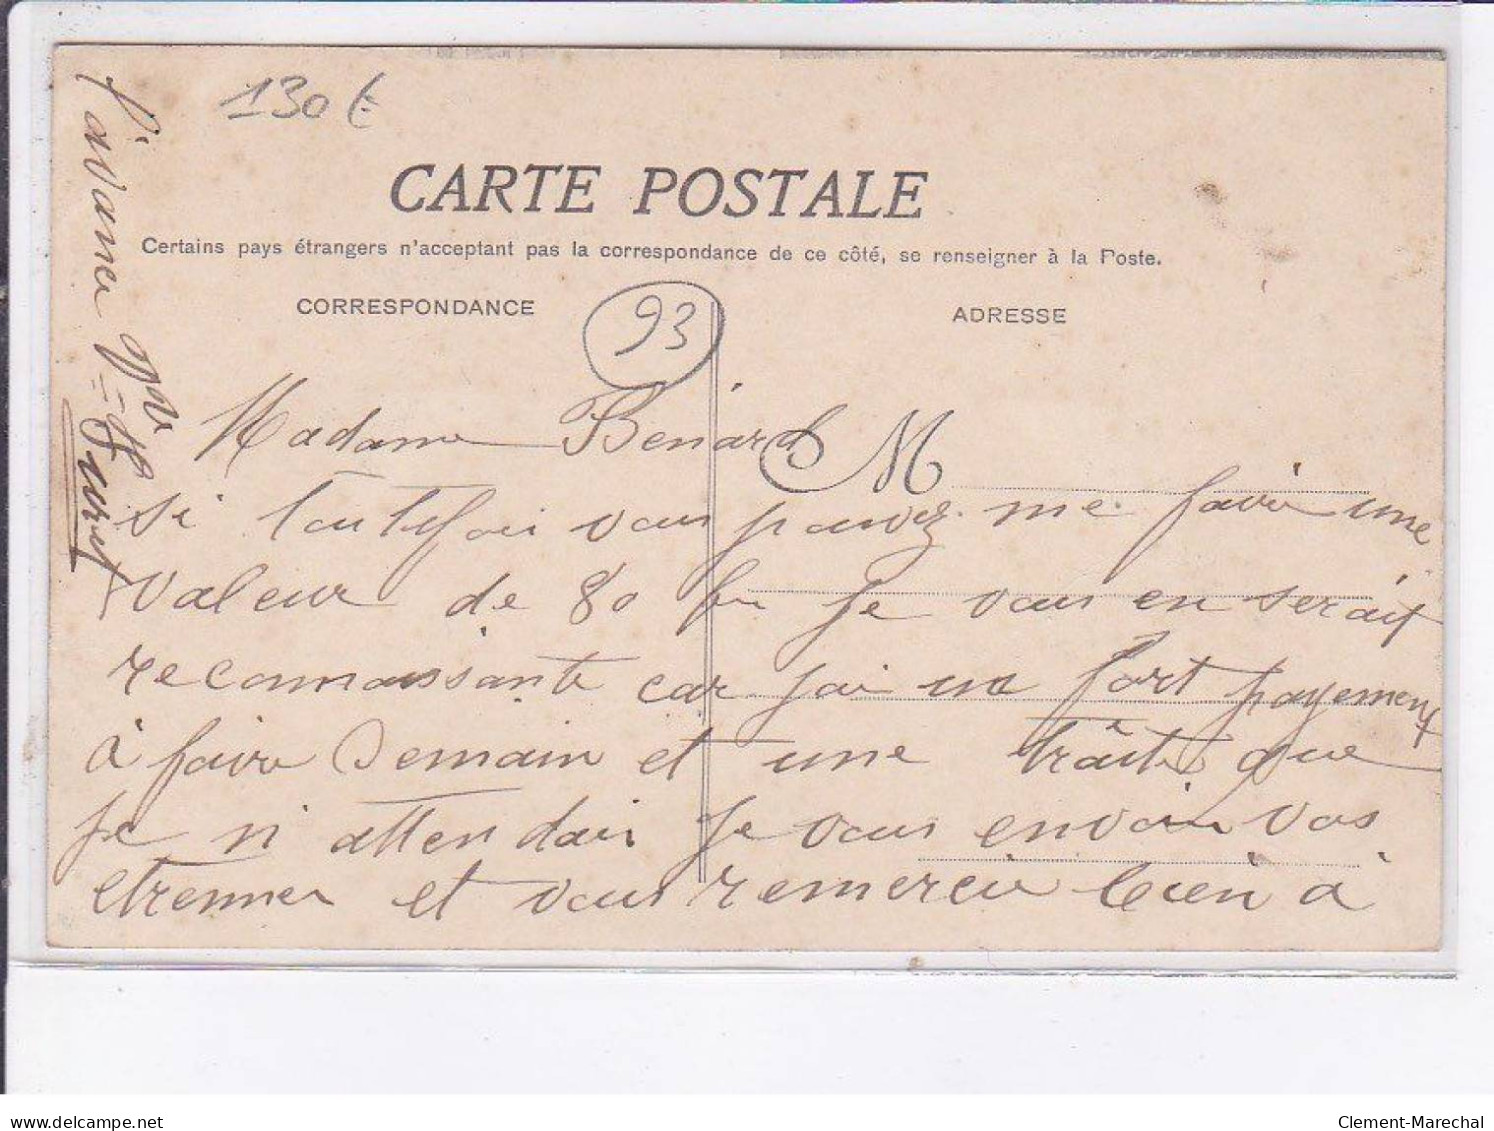 130 €
CARTE POSTALE
Certains pays étrangers n'acceptant pas la correspondance de ce côté, se renseigner à la Poste.
CORRESPONDANCE
ADRESSE
93
M
Madame Benard
si toutefois vous pouvez me faire une
valeur de 80 fr je vous en serait
reconnaissante car jai un fort payement
à faire Demain et une traite que
je n'attendais je vous envoi vos
etrennes et vous remercie bien à
l'avance Mme
delcampe.net
Clement-Marechal